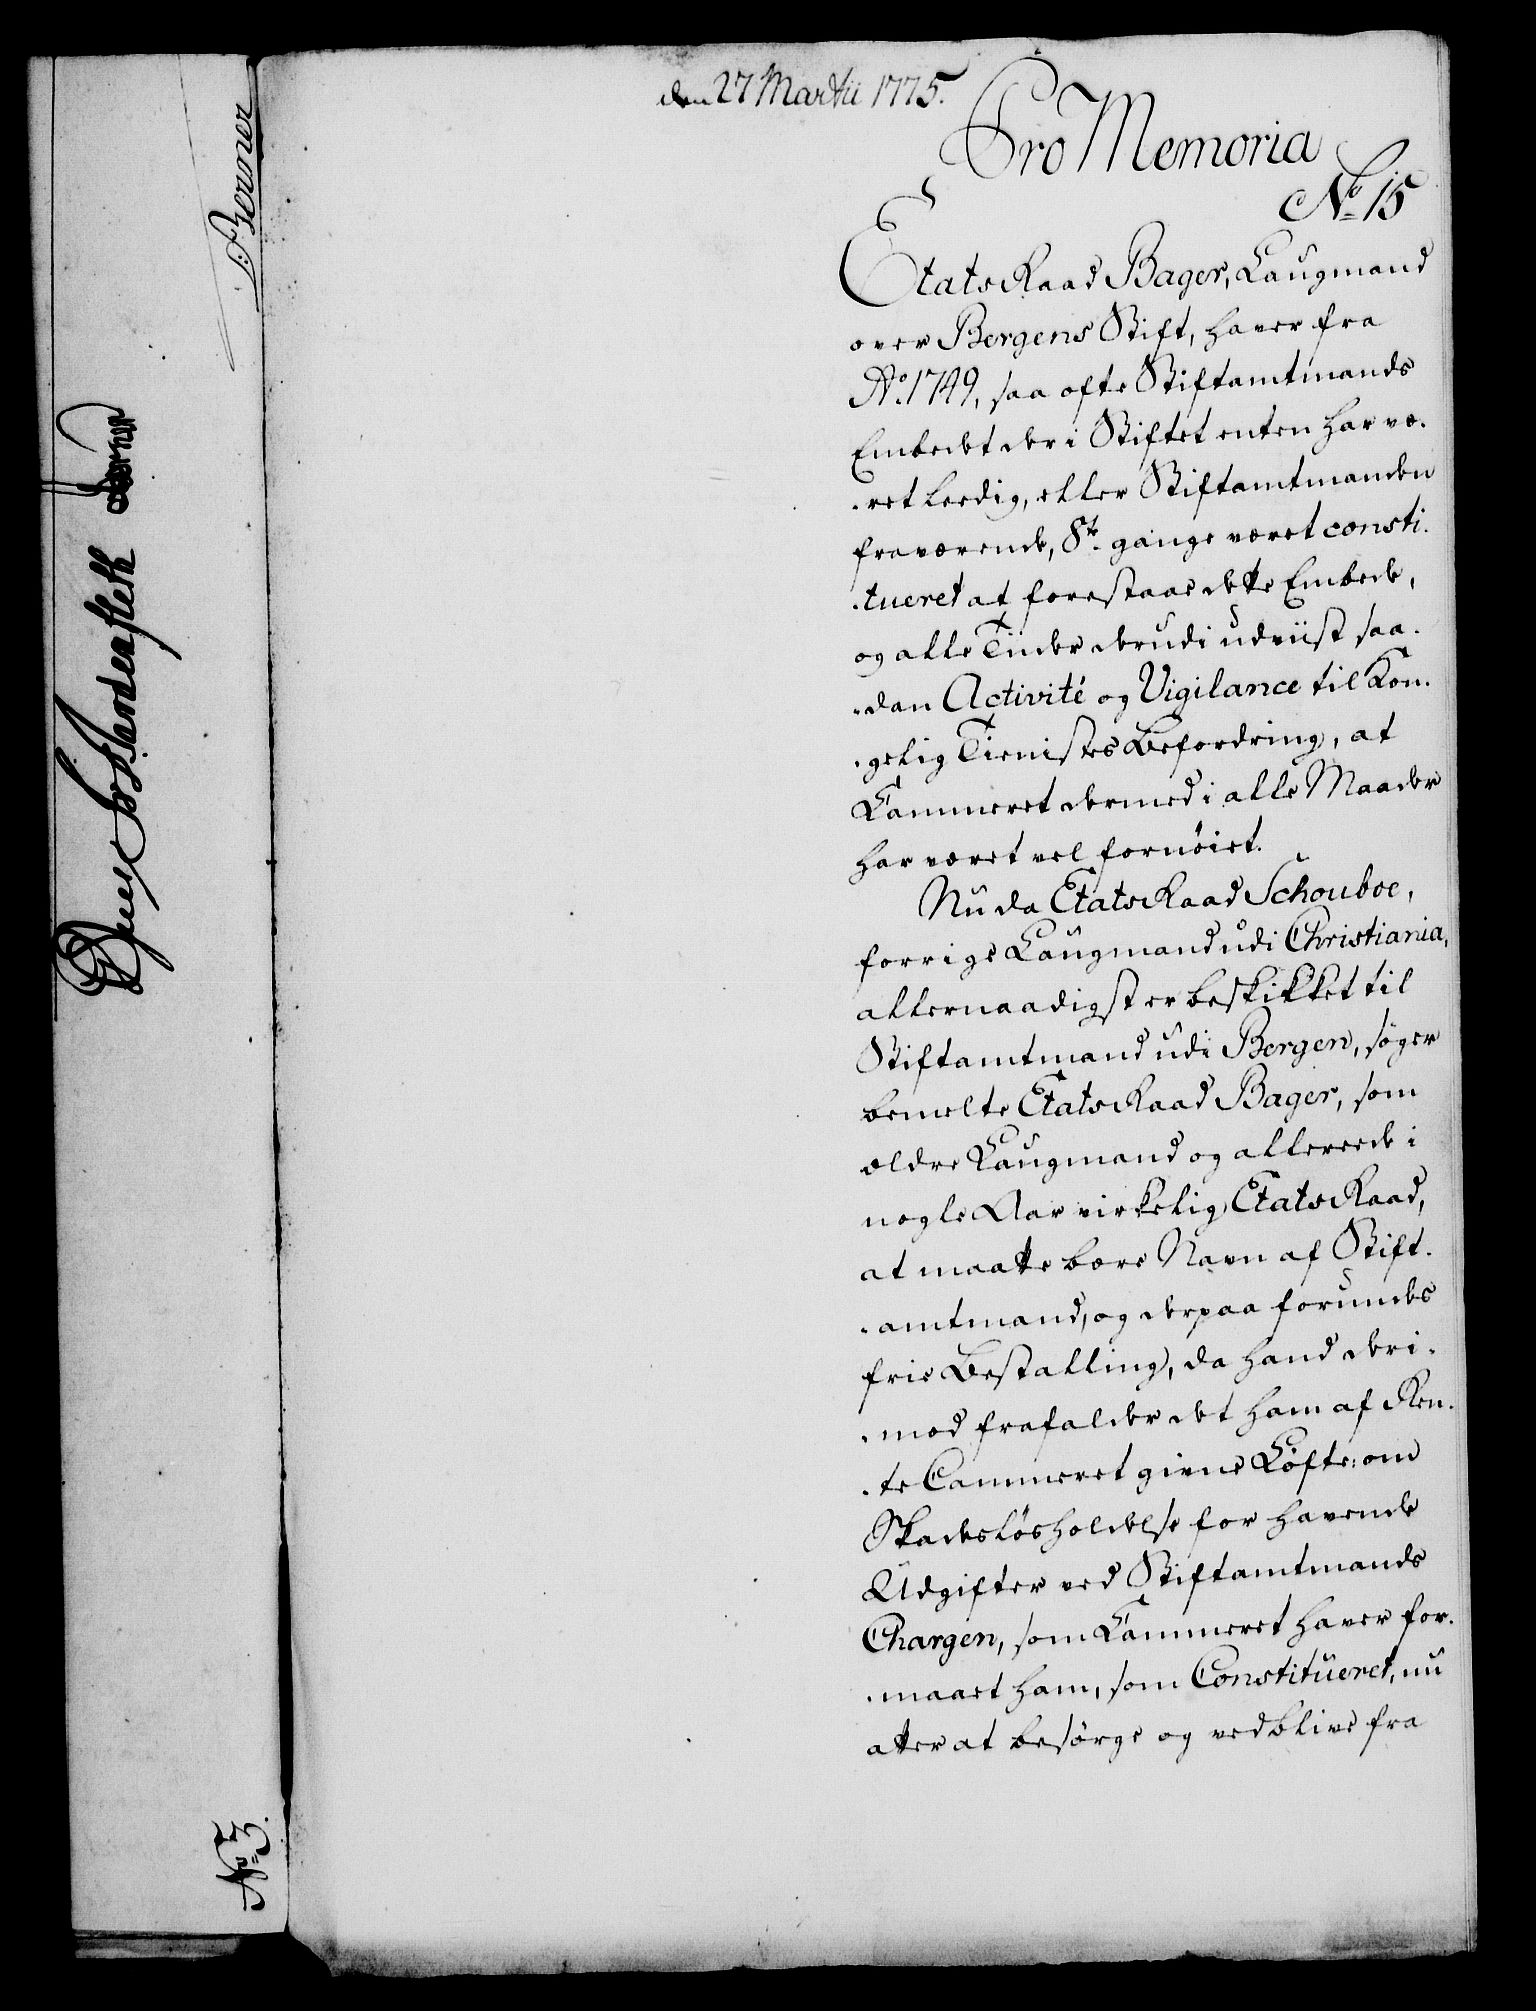 den 27 Martii 1775.
Pro Memoria
No 15
EtatsRaad Bager, Laugmand
over Bergens Stift, haver fra
Ao. 1749, saa ofte Stiftamtmands
Embedet der i Stiftet enten har væ-
-ret leedig, eller Stiftamtmanden
fraværende, 8te. gange været consti-
-tueret at forestaae dette Embede,
og alle Tiider derudi udviist saa-
-dan Activité og Vigilance til Kon-
-gelig Tienistes Befordring, at
Cammeret dermed i alle Maader
har været vel fornöiet.
Nu da EtatsRaad Schouboe,
forrige Laugmand udi Christiania,
allernaadigst er beskikket til
Stiftamtmand udi Bergen, söger
bemelte EtatsRaad Bager, som
ældre Laugmand og allereede i
nogle Aar virkelig EtatsRaad,
at maatte bære Navn af Stift-
-amtmand, og derpaa forundes
frie Bestalling, da hand deri-
-mod frafalder det ham af Ren-
-te Cammeret givne Löfte om
Skadeslösholdelse for havende
Udgifter ved Stiftamtmands
Chargen, som Cammeret haver for-
-maaet ham, som Constitueret, nu
atter at besörge og vedblive fra
Berner
No 3.